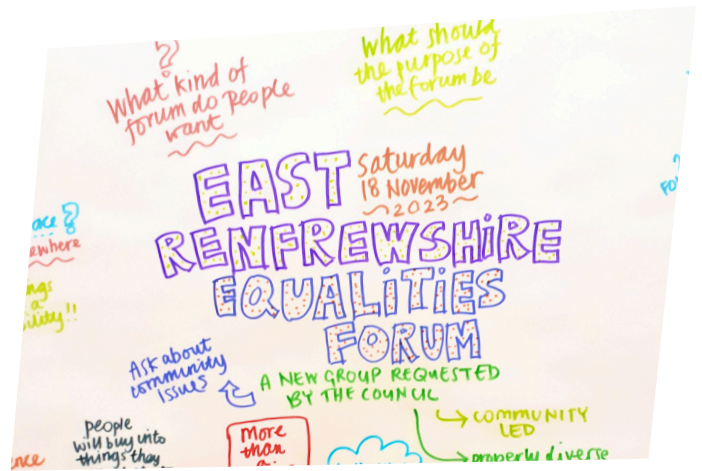 ?
What kind of
forum do people
want
what should
the purpose of
the forum be
EAST
Saturday
18 November
2023
RENFREWSHIRE
EQUALITIES
FORUM
?
ewhere
ngs
a
ility!!
?
Ask about
community
Issues
A NEW GROUP REQUESTED
BY THE COUNCIL
COMMUNITY
LED
properly diverse
people
will buy into
things they
More
than